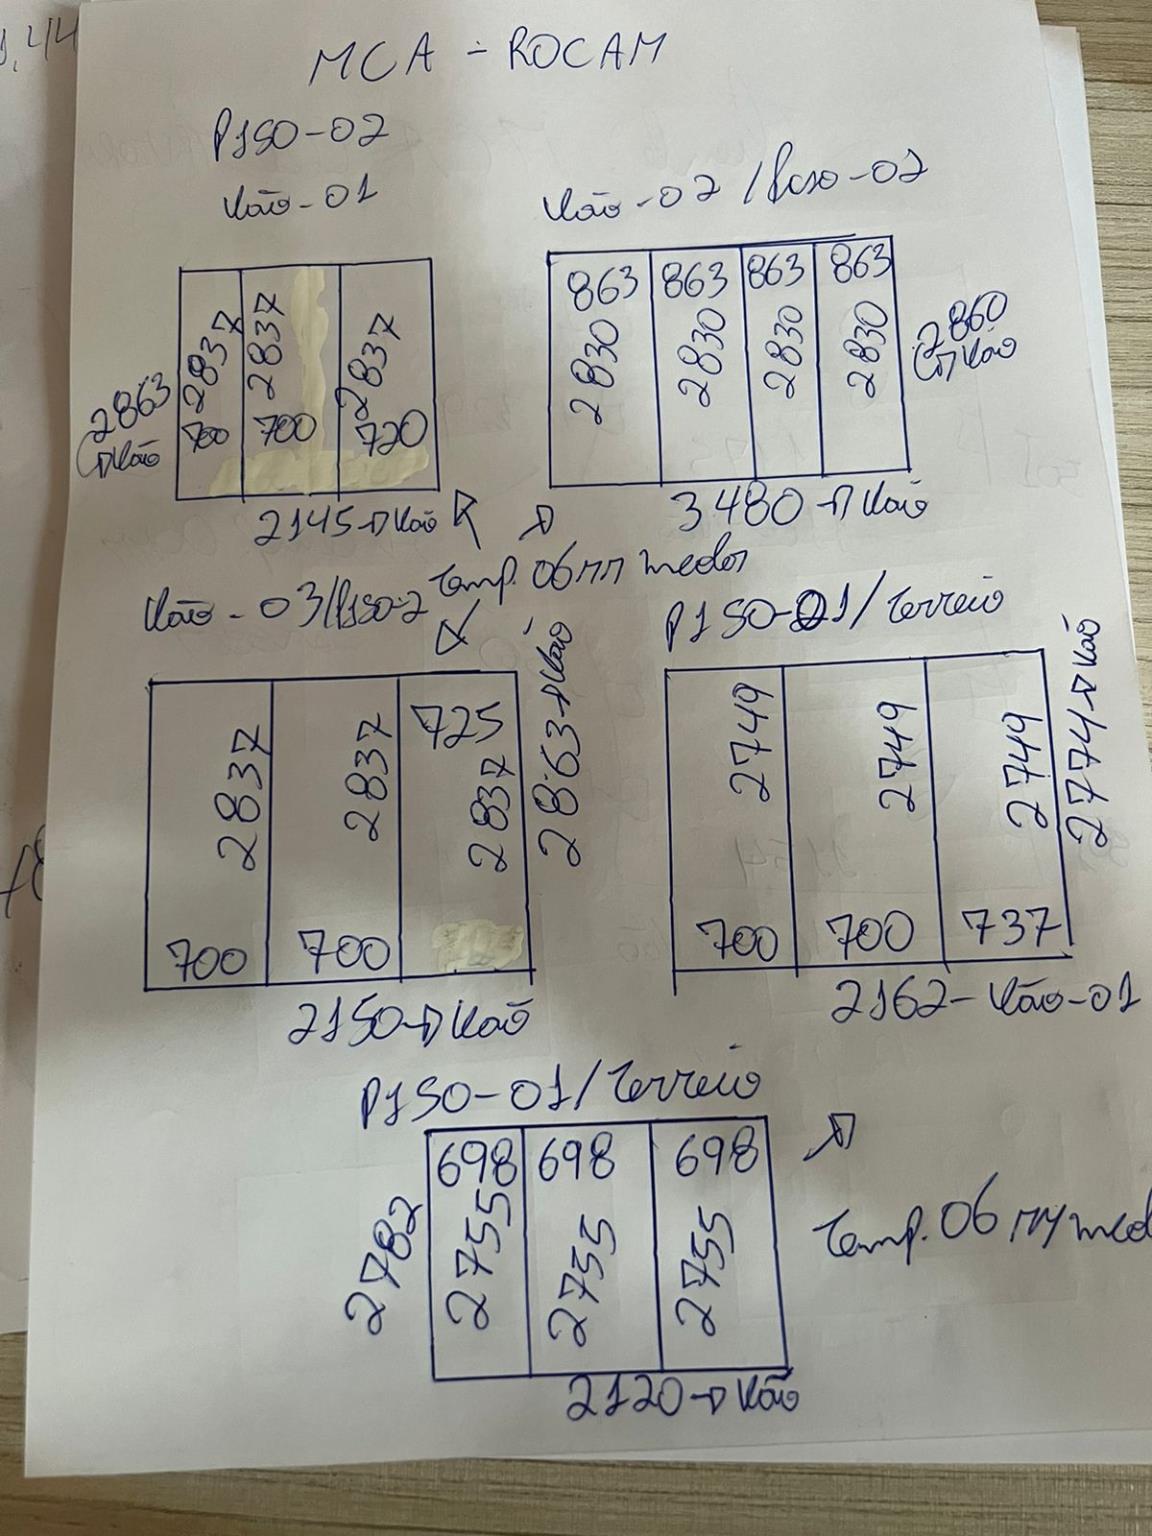 MCA - ROCAM
PISO-02
Vão-01
2837
2837
2837
700
700
720
2863
Vão
2145→Vão
Vão-02 / Piso-02
863 863 863 863
2830 2830 2830 2830
2860
Vão
3480→Vão
Temp. 06mm
Vão-03/PISO-2
2837
2837
725
2837
700 700
2863→Vão
2150→Vão
PISO-01/Terreio
2749
2749
2749
700 700 737
2774→Vão
2162-Vão-01
PISO-01/Terreio
698 698 698
2755 2755 2755
2782
2120→Vão
Temp. 06
1,44